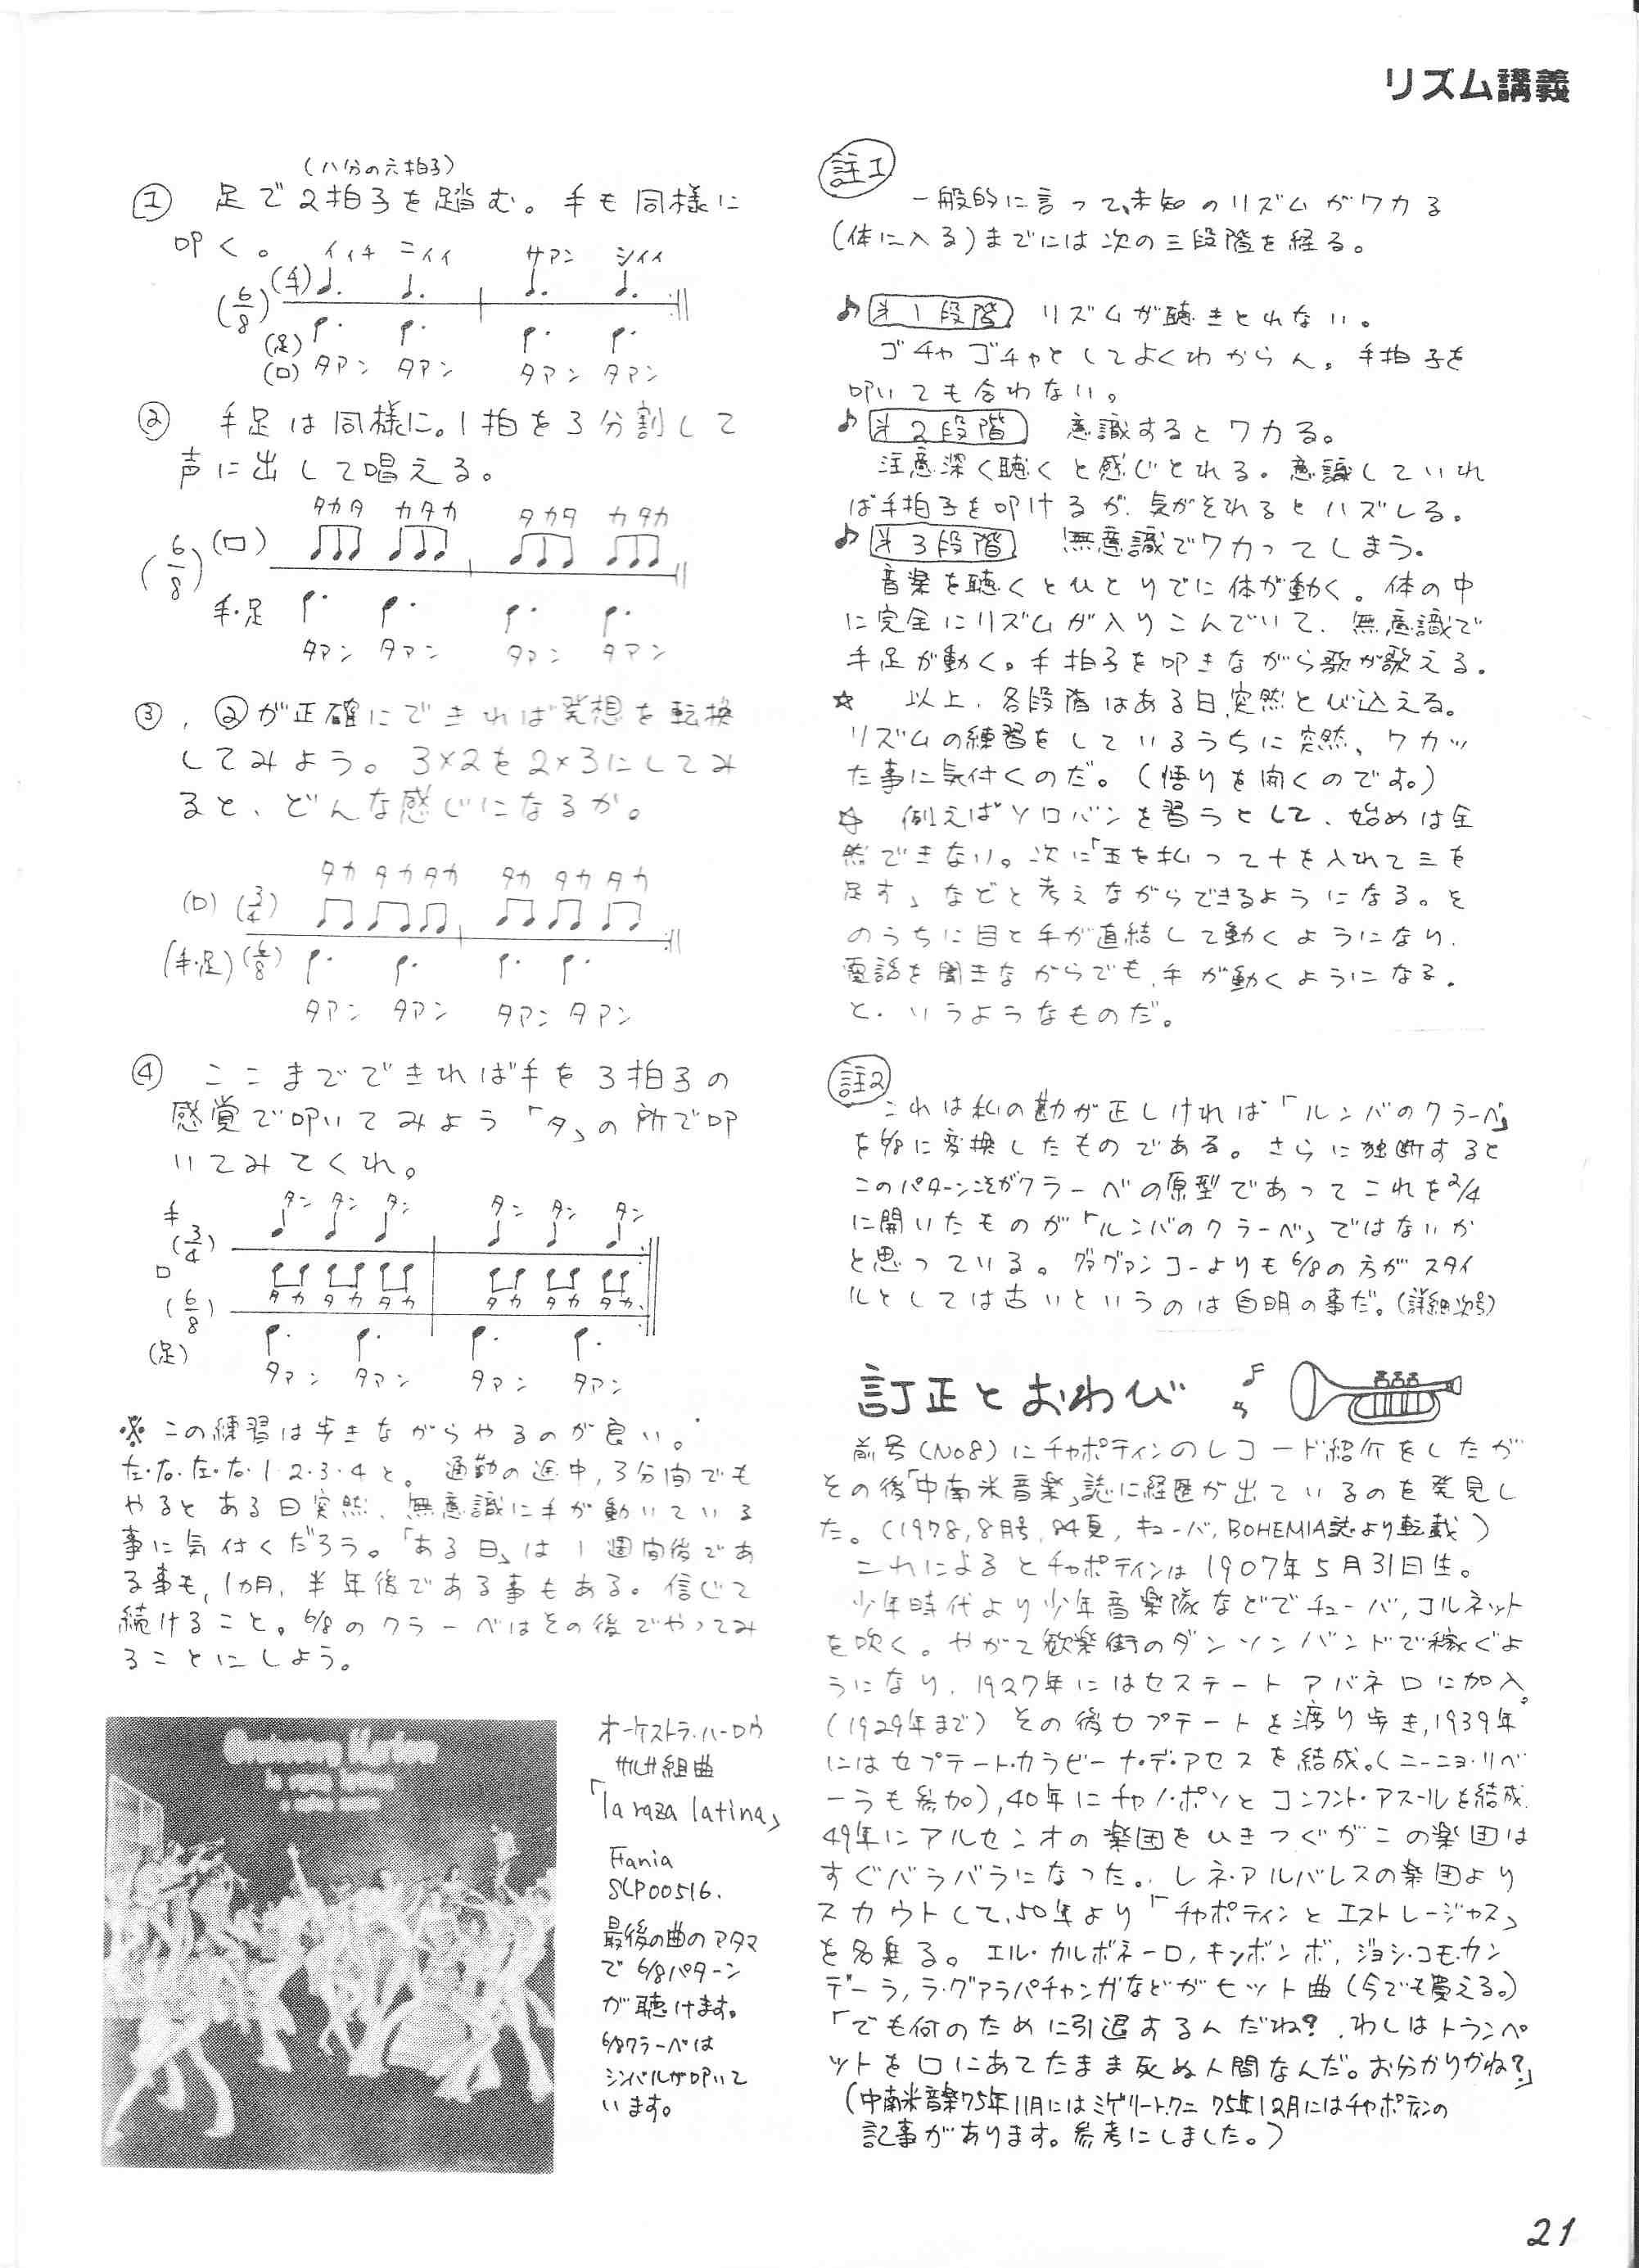 リズム講義
(八分の六拍子)
① 足で2拍子を踏む。手も同様に
叩く。
イイチ ニイイ サアン シイイ
(6/8) (手)
(足)
(口) タアン タアン タアン タアン
② 手足は同様に。1拍を3分割して
声に出して唱える。
タカタ カタカ タカタ カタカ
(6/8) (口)
手・足
タアン タアン タアン タアン
③, ②が正確にできれば発想を転換
してみよう。3×2を2×3にしてみ
ると、どんな感じになるか。
タカ タカ タカ タカ タカ タカ
(口) (3/4)
(手・足) (6/8)
タアン タアン タアン タアン
④ ここまでできれば手を3拍子の
感覚で叩いてみよう「タ」の所で叩
いてみてくれ。
タン タン タン タン タン タン
手
(3/4)
口
タカ タカ タカ タカ タカ タカ
(6/8)
(足)
タアン タアン タアン タアン
※ この練習は歩きながらやるのが良い。
左・右・左・右・1・2・3・4と。通勤の途中,3分間でも
やるとある日突然、無意識に手が動いている
事に気付くだろう。「ある日」は1週間後であ
る事も,1カ月,半年後である事もある。信じて
続けること。6/8のクラーベはその後でやってみ
ることにしよう。
オーケストラ・ハーロウ
サルサ組曲
「la raza latina」
Fania
SLP00516.
最後の曲のアタマ
で 6/8パターン
が聴けます。
6/8クラーベは
シンバルが叩いて
います。
註1
一般的に言って、未知のリズムがワカる
(体に入る)までには次の三段階を経る。
♪ 第1段階 リズムが聴きとれない。
ゴチャゴチャとしてよくわからん。手拍子を
叩いても合わない。
♪ 第2段階 意識するとワカる。
注意深く聴くと感じとれる。意識していれ
ば手拍子を叩けるが、気がそれるとハズレる。
♪ 第3段階 無意識でワカってしまう。
音楽を聴くとひとりでに体が動く。体の中
に完全にリズムが入りこんでいて、無意識で
手足が動く。手拍子を叩きながら歌が歌える。
☆ 以上、各段階はある日、突然とび込える。
リズムの練習をしているうちに突然、ワカッ
た事に気付くのだ。(悟りを開くのです。)
☆ 例えばソロバンを習うとして、始めは全
然できない。次に「五を払って十を入れて三を
足す」などと考えながらできるようになる。そ
のうちに目と手が直結して動くようになり、
電話を聞きながらでも、手が動くようになる。
と、いうようなものだ。
註2
これは私の勘が正しければ「ルンバのクラーベ」
を6/8に変換したものである。さらに独断すると
このパターンこそがクラーベの原型であってこれを2/4
に開いたものが「ルンバのクラーベ」ではないか
と思っている。グァグァンコーよりも6/8の方がスタイ
ルとしては古いというのは自明の事だ。(詳細次号)
訂正とおわび
前号(No8)にチャポティンのレコード紹介をしたが
その後「中南米音楽」誌に経歴が出ているのを発見し
た。(1978,8月号,84頁,キューバ,BOHEMIA誌より転載)
これによるとチャポティンは1907年5月31日生。
少年時代より少年音楽隊などでチューバ,コルネット
を吹く。やがて歓楽街のダンソンバンドで稼ぐよ
うになり、1927年にはセステートアバネロに加入。
(1929年まで)その後セプテートを渡り歩き,1939年
にはセプテート・カラビーナ・デ・アセスを結成。(ニーニョ・リベ
ーラも参加),40年にチャノ・ポソとコンフント・アスールを結成.
49年にアルセニオの楽団をひきつぐがこの楽団は
すぐバラバラになった。レネ・アルバレスの楽団より
スカウトして、50年より「チャポティンとエストレージャス」
を名乗る。エル・カルボネーロ,キンボンボ,ジョシ・コモ・カン
デーラ,ラ・グアラパチャンガなどがヒット曲(今でも買える。)
「でも何のために引退するんだね?、わしはトランペ
ットを口にあてたまま死ぬ人間なんだ。お分かりかね?」
(中南米音楽75年11月にはミゲリート・クニ 75年12月にはチャポティンの
記事があります。参考にしました。)
21